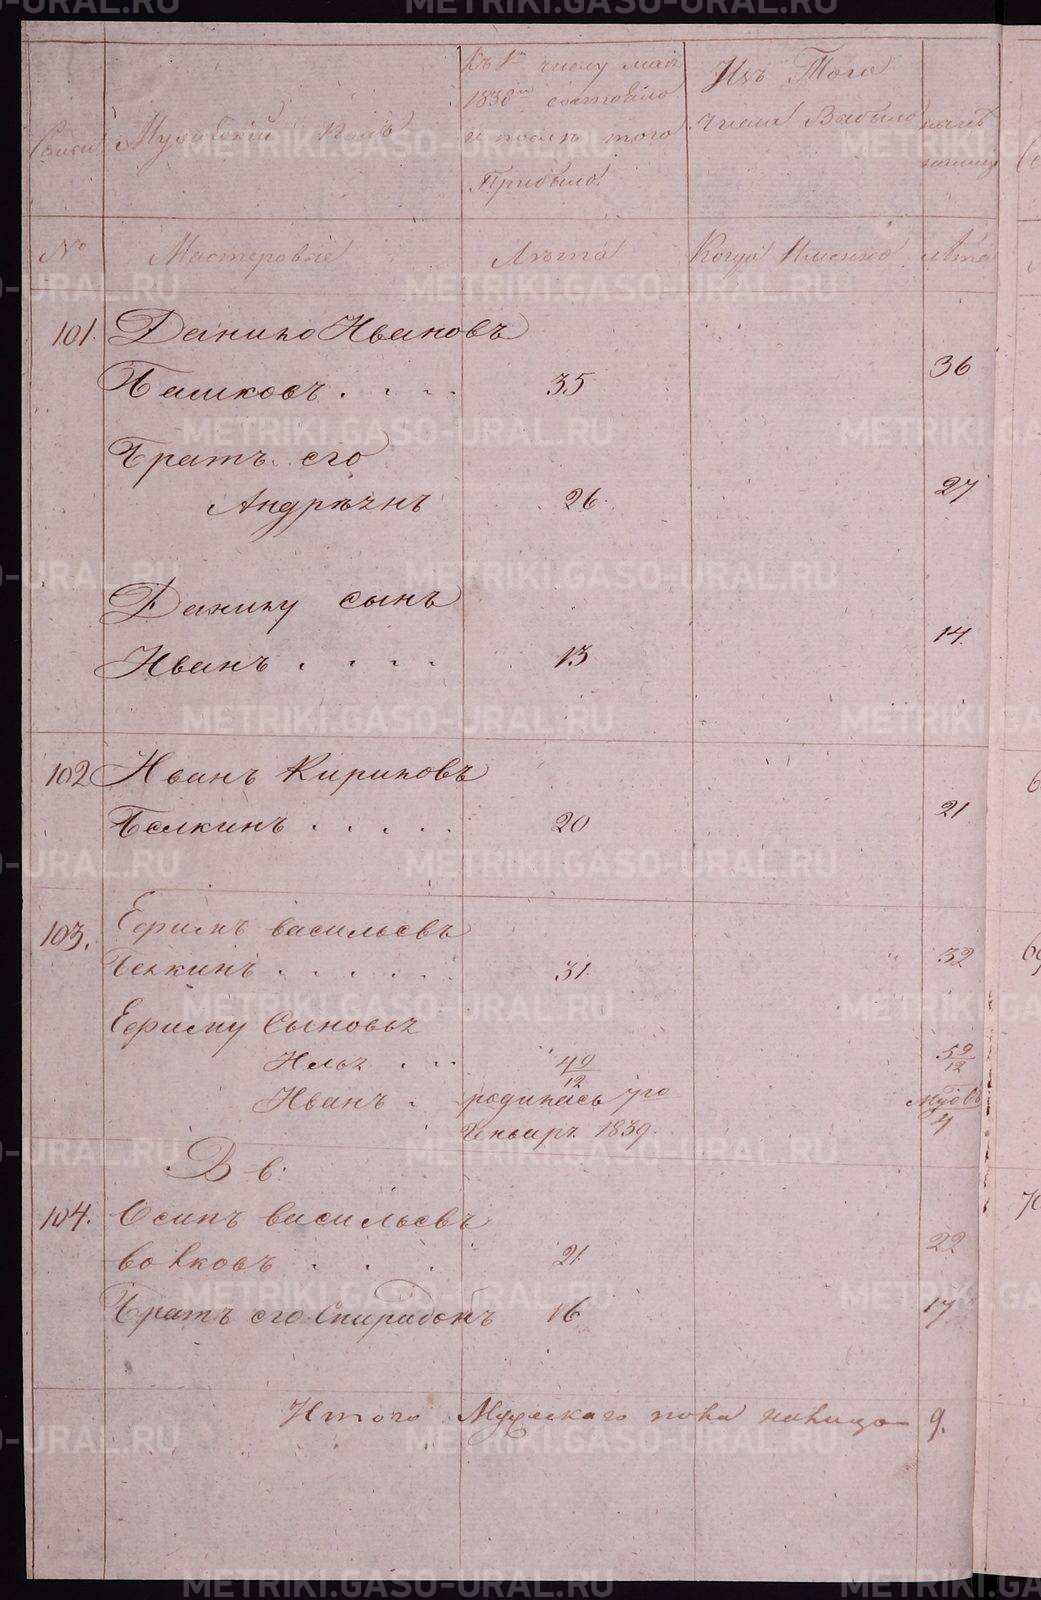 Семьи
Мужебский полъ
Къ 1му числу мая
1838го состояло
и после того
Прибыло.
Изъ Того
числа Выбыло
налицо
No
Мастеровые
Лѣта
Когда Именно
Лѣта
101. Данило Ивановъ
Башковъ . . . . 35 36
Братъ его
Андреянъ 26. 27
Данилу сынъ
Иванъ . . . . 13 14.
102 Иванъ Кириловъ
Белкинъ . . . . . 20 21
103. Ефимъ васильевъ
Белкинъ . . . . . 31. 32
Ефиму Сыновья
Илья . . . 4 9/12 5 9/12
Иванъ . родилась 7го
Генваря 1839.
В в:
104. Осипъ васильевъ
волковъ . . . 21. 22
Братъ его Спиридонъ 16 17
Итого Мужескаго пола налицо 9.
METRIKI.GASO-URAL.RU